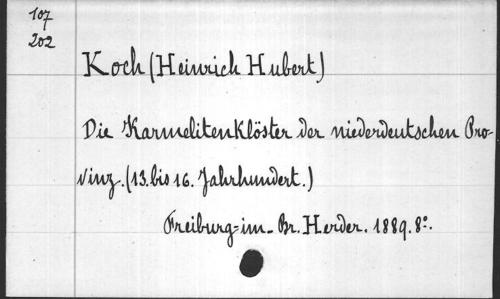 107
202
Koch (Heinrich Hubert)
Die Karmelitenklöster der niederdeutschen Pro-
vinz. (13. bis 16. Jahrhundert.)
Freiburg-im-Br. Herder. 1889. 8º.